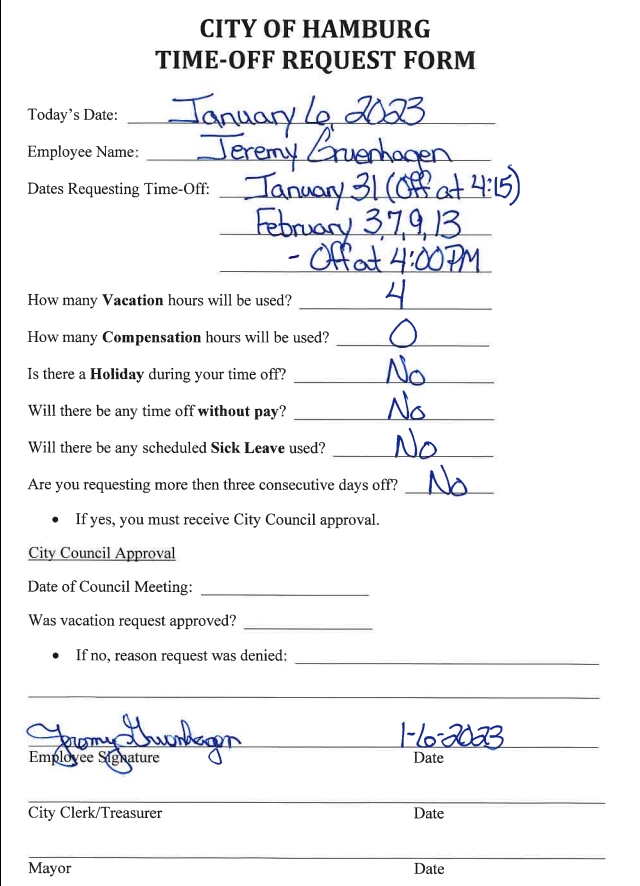 CITY OF HAMBURG
TIME-OFF REQUEST FORM
Today's Date: January 6, 2023
Employee Name: Jeremy Gruenhagen
Dates Requesting Time-Off: January 31 (Off at 4:15)
February 3,7,9,13
- Off at 4:00 PM
How many Vacation hours will be used? 4
How many Compensation hours will be used? 0
Is there a Holiday during your time off? No
Will there be any time off without pay? No
Will there be any scheduled Sick Leave used? No
Are you requesting more then three consecutive days off? No
• If yes, you must receive City Council approval.
City Council Approval
Date of Council Meeting:
Was vacation request approved?
• If no, reason request was denied:
Jeremy Gruenhagen 1-6-2023
Employee Signature Date
City Clerk/Treasurer Date
Mayor Date